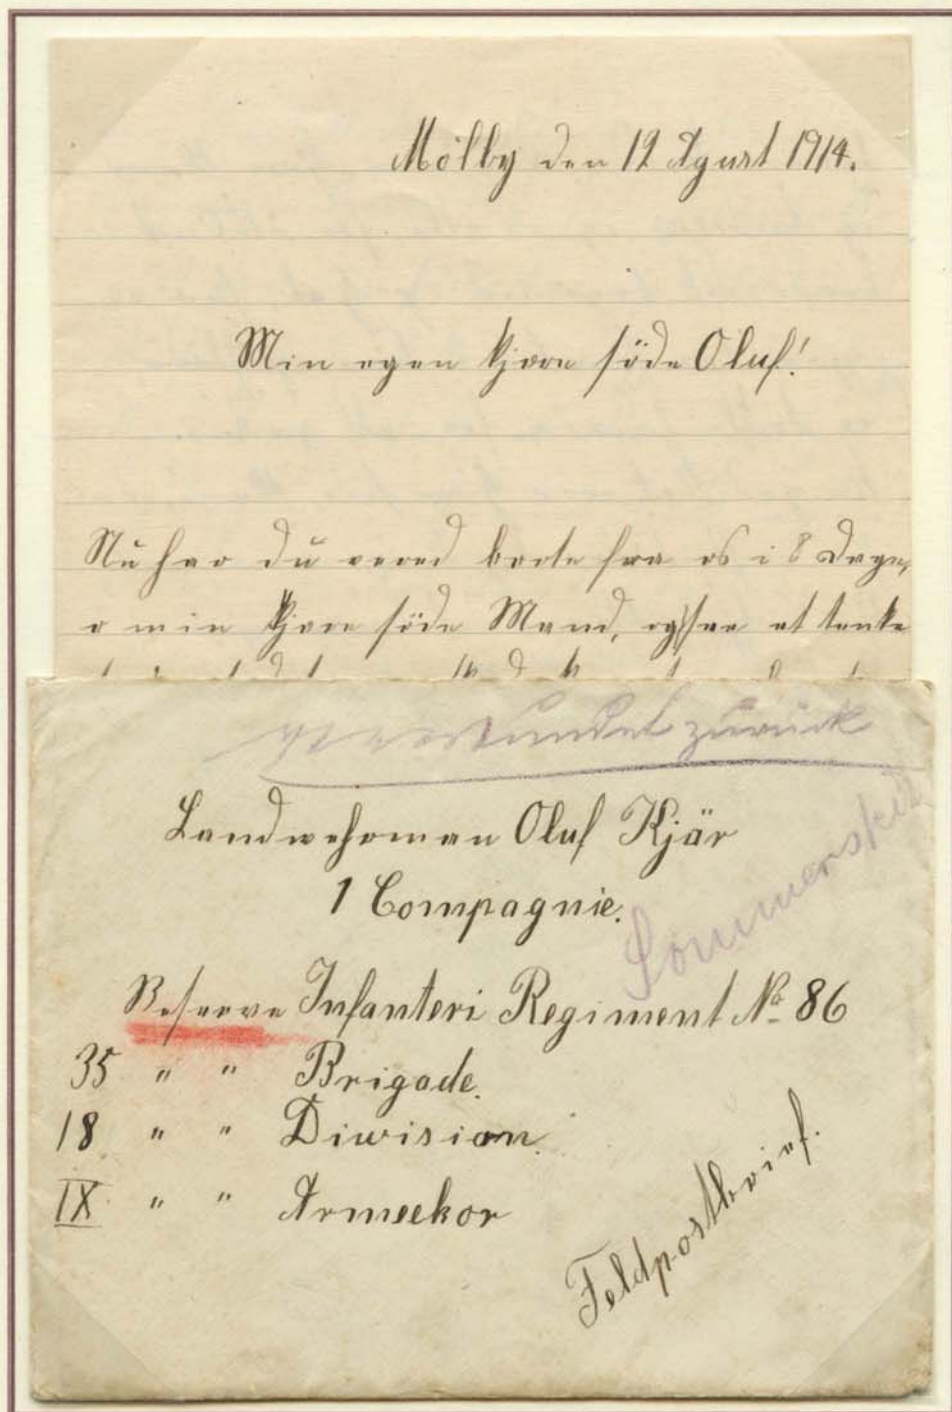 Mölby den 12 Agust 1914.
Min egen kjære söde Oluf!
Nu har du væred borte fra os i 8 Dage,
o min kjære söde Mand, og saa at tenke
verwundet zurück
Landwehrman Oluf Kjär
1 Compagnie.
Reserve Infanteri Regiment No 86
35 " " Brigade.
18 " " Diwision.
IX " " Armeekor
Feldpostbrief.